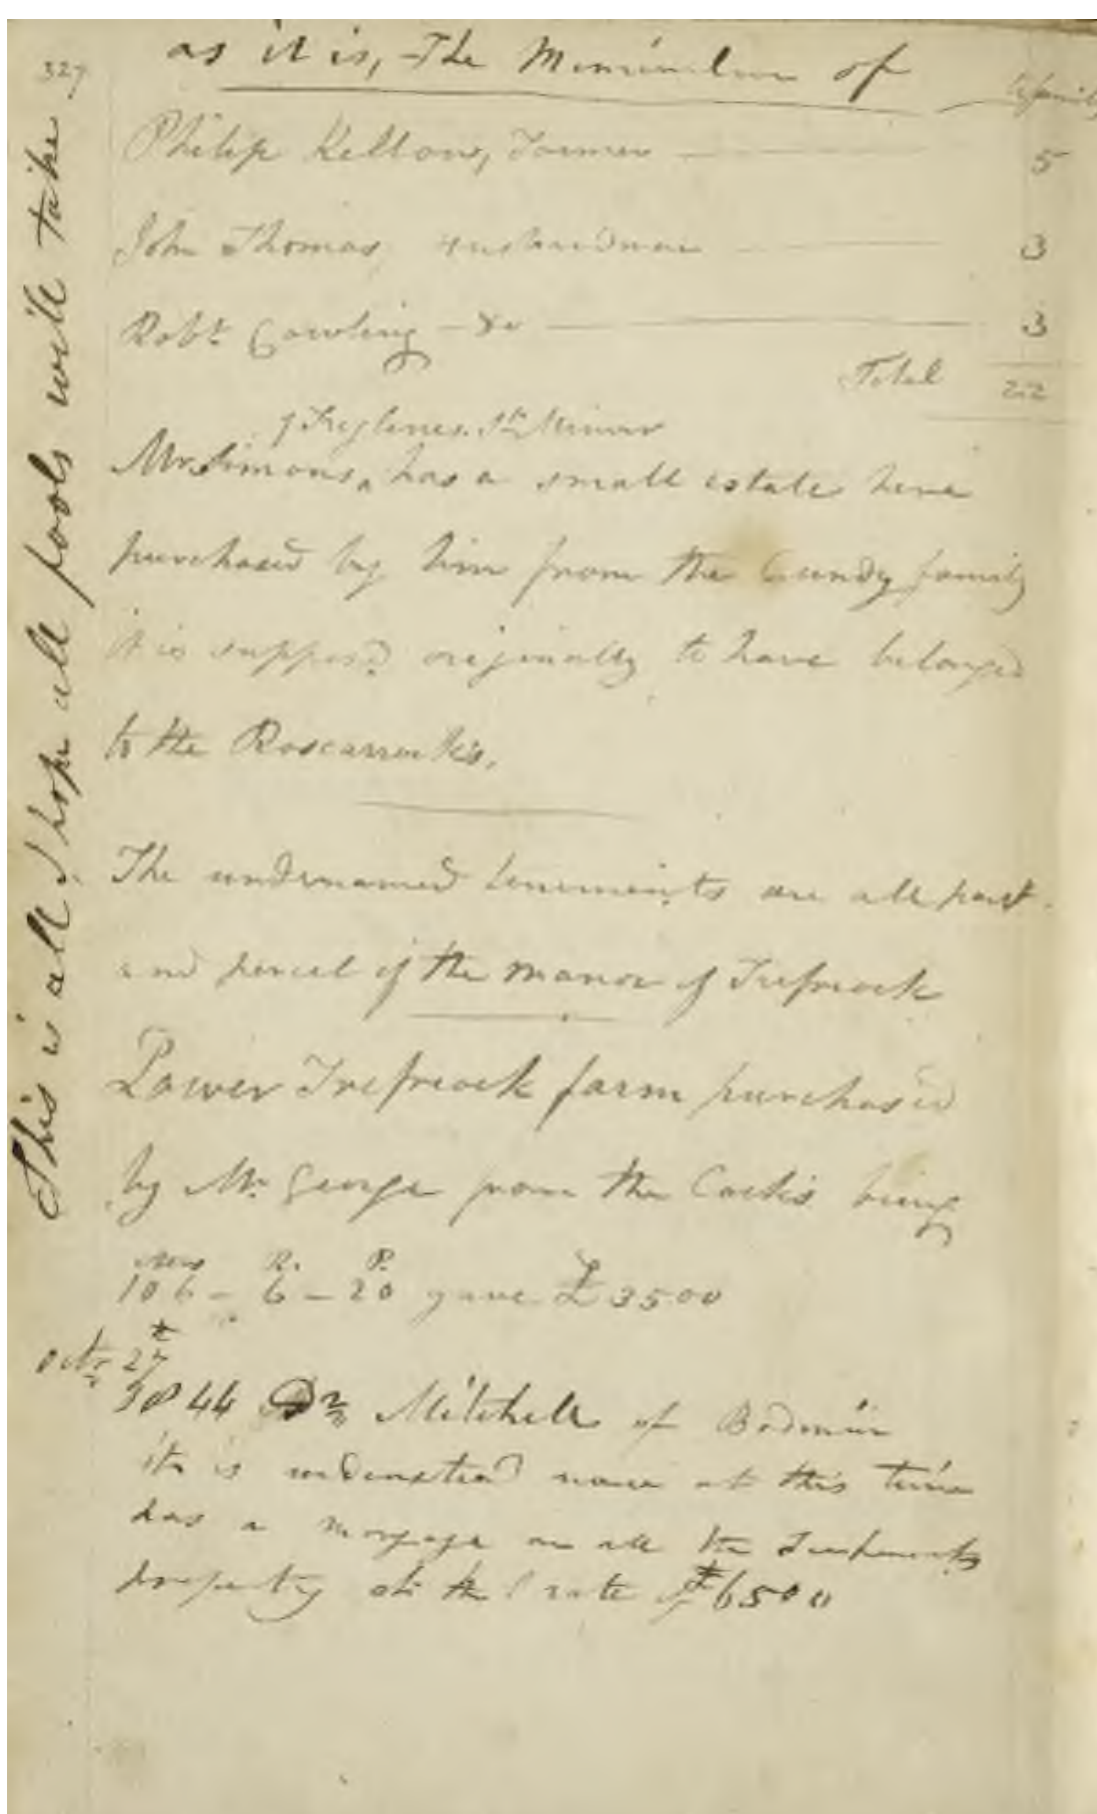 327
as it is, The of
family
Philip Kellow, Farmer 5
John Thomas, Husbandman 3
Robt Cowling - Do 3
Total 22
of Treglines St Minver
Mr Simons ^ has a small estate here
purchased by him from the Cundy family
it is supposed originally to have belonged
to the Roscarrocks.
The undernamed tenements are all part
and parcel of the manor of Trefreock
Lower Trefreock farm purchas'd
by Mr George from the Cocks being
Acres R. P.
106 - 6 - 20 gave £3500
Octr 27
1844 Dr Mitchell of Bodmin
it is understood now at this time
has a morgage on all the
property at the rate of £6500
This is all I hope all fools will take